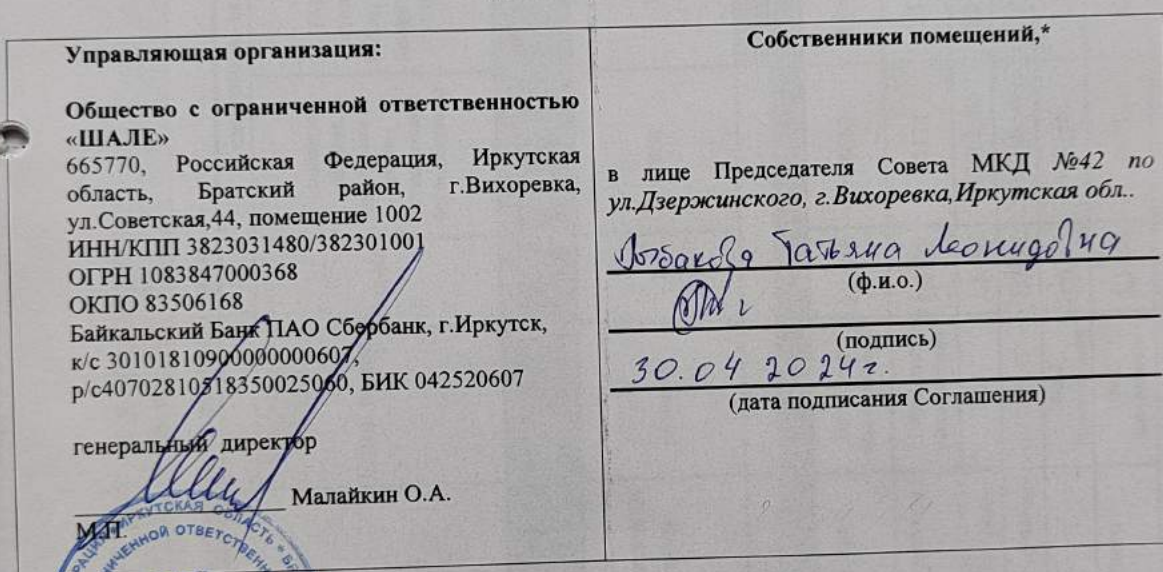 Управляющая организация:
Общество с ограниченной ответственностью
«ШАЛЕ»
665770, Российская Федерация, Иркутская
область, Братский район, г.Вихоревка,
ул.Советская,44, помещение 1002
ИНН/КПП 3823031480/382301001
ОГРН 1083847000368
ОКПО 83506168
Байкальский Банк ПАО Сбербанк, г.Иркутск,
к/с 30101810900000000607,
р/с40702810518350025060, БИК 042520607
генеральный директор
Малайкин О.А.
М.П.
ИРКУТСКАЯ ОБЛАСТЬ
Собственники помещений,*
в лице Председателя Совета МКД №42 по
ул.Дзержинского, г.Вихоревка,Иркутская обл..
Татьяна Леонидовна
(ф.и.о.)
(подпись)
30.04 2024г.
(дата подписания Соглашения)